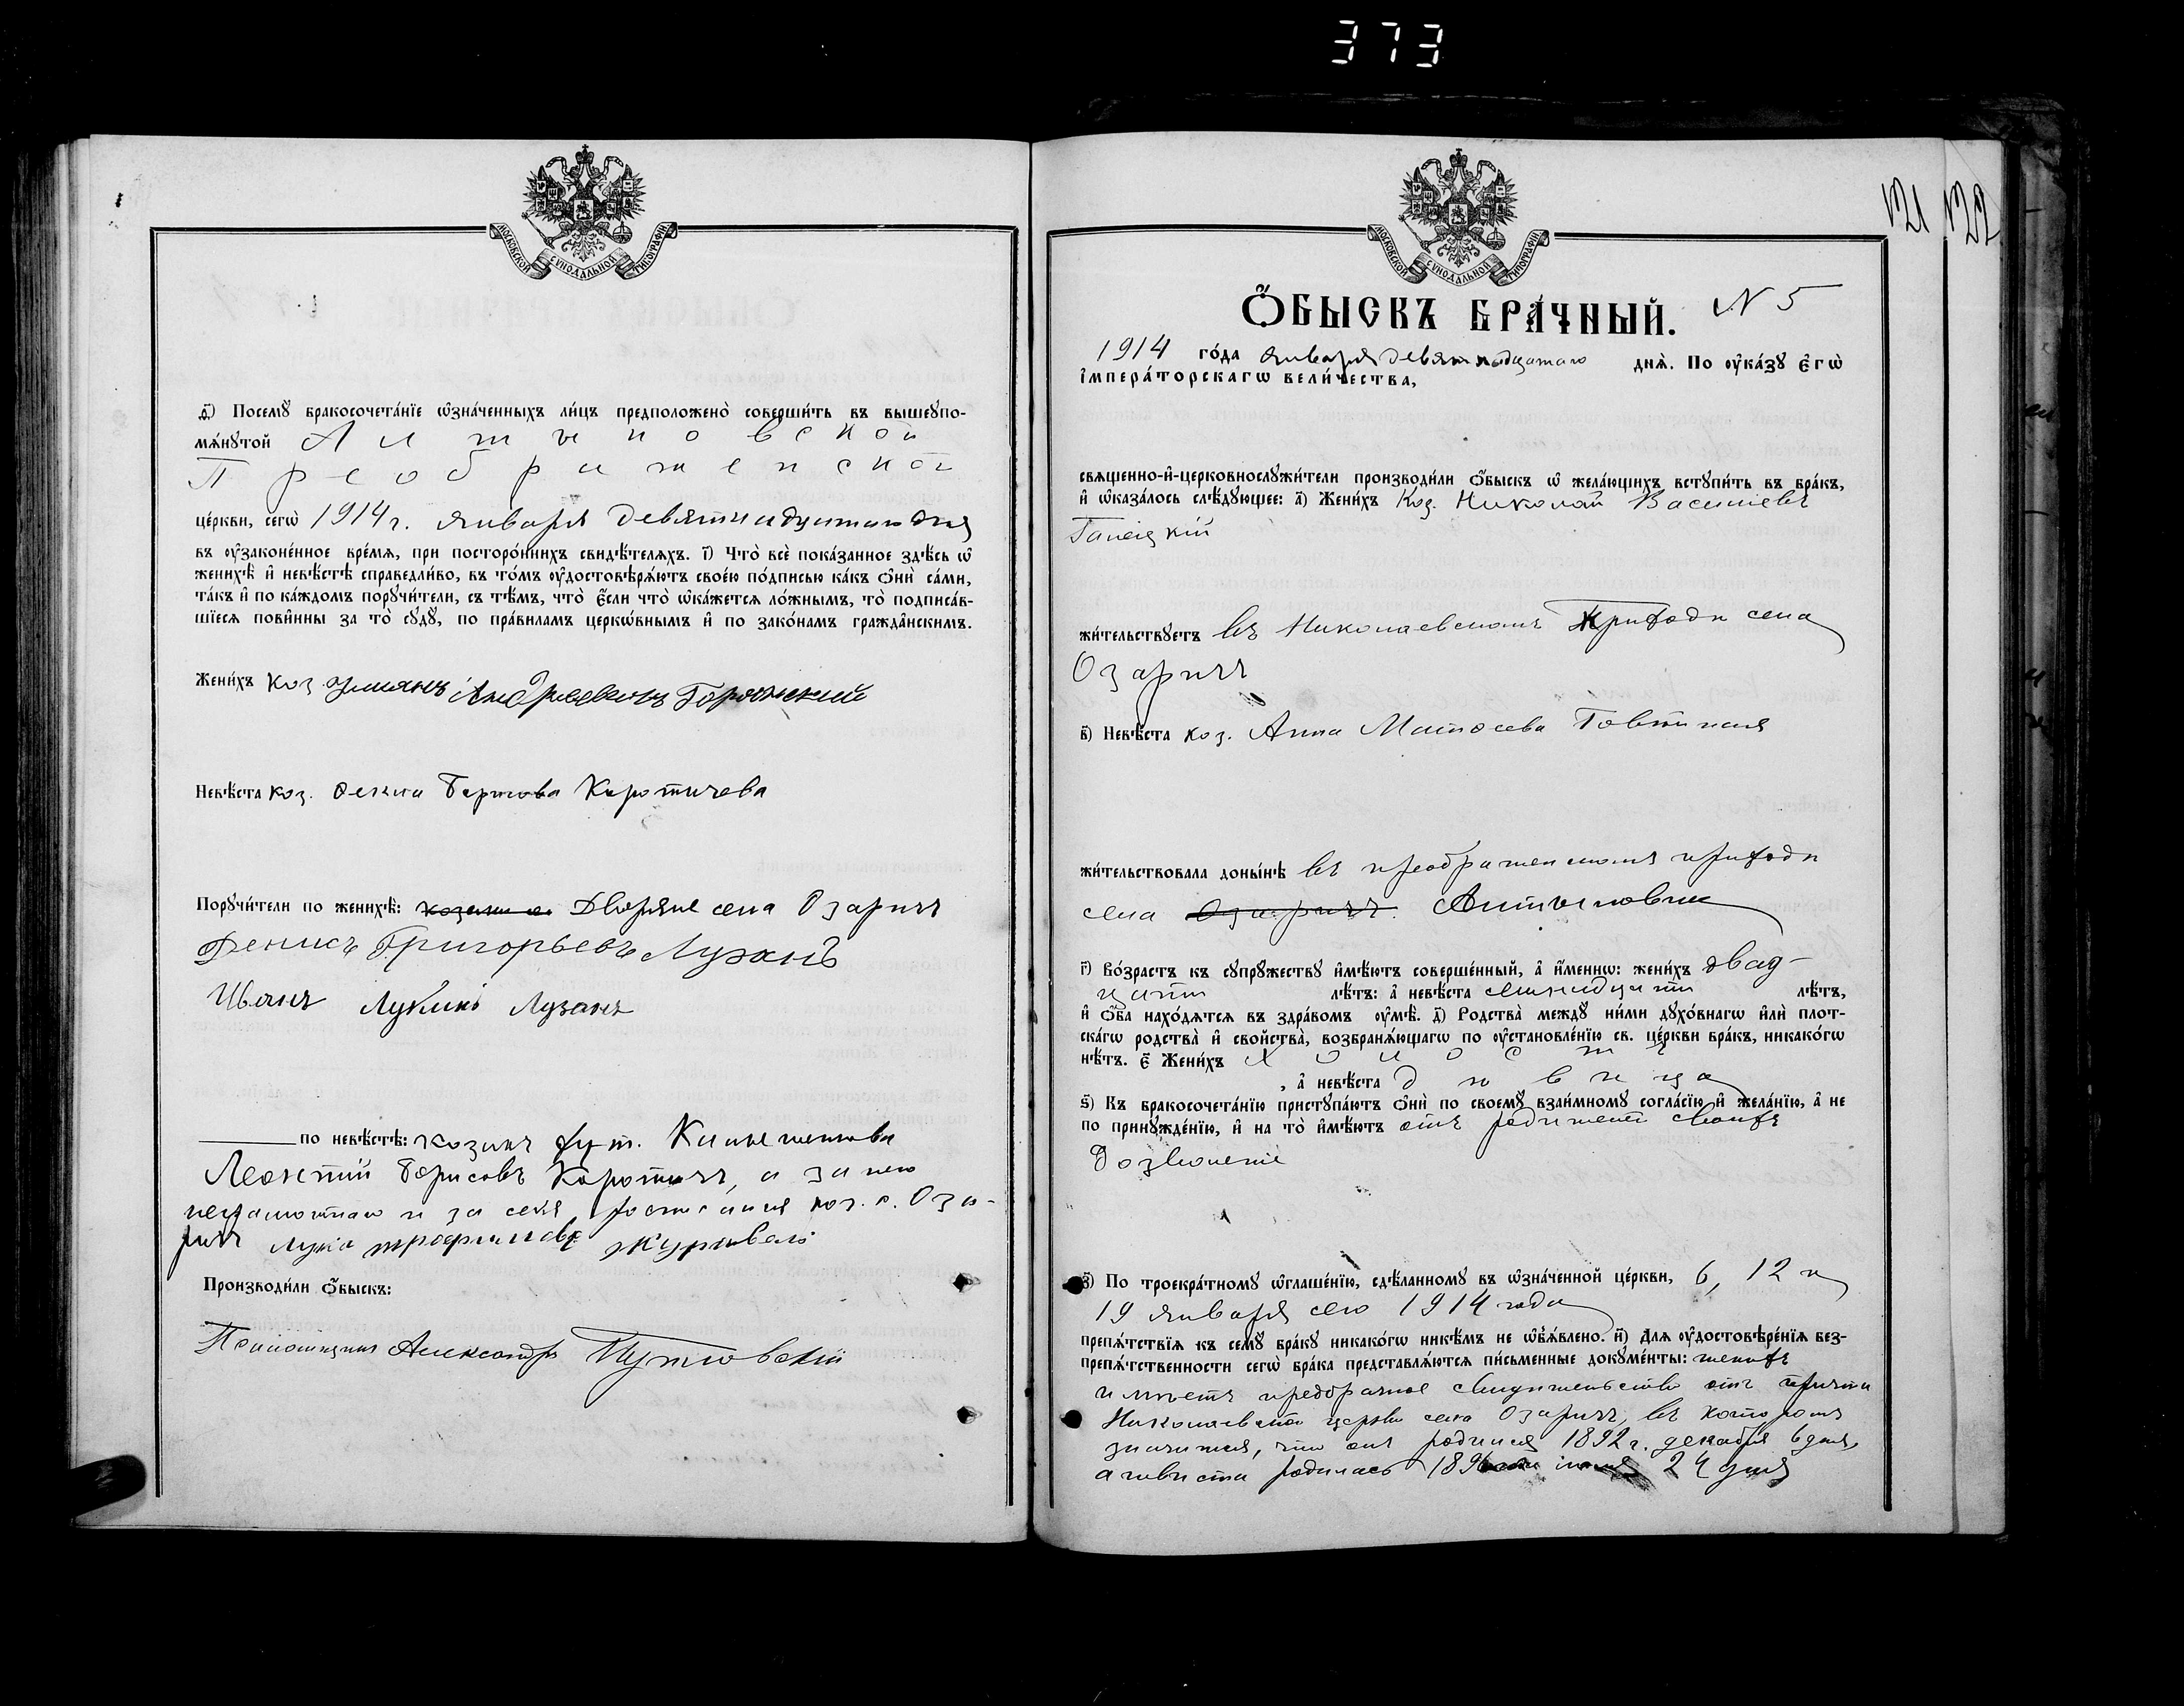 373
МОСКОВСКОЙ СѴНОДАЛЬНОЙ ТИПОГРАФІИ
ѳ҃) Посемꙋ̀ бракосочета́нїе ѡ҆зна́ченныхъ ли́цъ предположено̀ соверши́ть въ вышеꙋпо-
мѧ́нꙋтой Алтыновской
Преображенской
це́ркви, сегѡ̀ 1914 г. января девятнадцатаго дня
въ ᲂу҆законе́нное вре́мѧ, при посторо́ннихъ свидѣ́телѧхъ. і҃) Что̀ всѐ пока́занное здѣ́сь ѡ҆
женихѣ̀ и҆ невѣ́стѣ справедли́во, въ то́мъ ᲂу҆достовѣрѧ́ютъ свое́ю по́дписью ка́къ ѻ҆нѝ са́ми,
та́къ и҆ по ка́ждомъ порꙋчи́тели, съ тѣ́мъ, что̀ є҆́сли что̀ ѡ҆ка́жетсѧ ло́жнымъ, то̀ подписа́в-
шїесѧ пови́нны за то̀ сꙋдꙋ̀, по пра́виламъ церкѡ́внымъ и҆ по зако́намъ гражда́нскимъ.
Жени́хъ коз.
Невѣ́ста коз. Борисова Коротичева
Порꙋчи́тели по женихѣ̀: Дворяне села Озаричъ
Денисъ Григорьевъ Лузанъ
Иванъ Лузанъ
по невѣ́стѣ: козакъ хут.
Леонтій Борисовъ Коротичъ, а за него
неграмотнаго и за себя росписался коз. с. Оза-
ричъ Лука Трофимовъ Журавель
Производи́ли ѻ҆́быскъ:
Александръ
121 122
МОСКОВСКОЙ СѴНОДАЛЬНОЙ ТИПОГРАФІИ
Ѻ҆́БЫСКЪ БРА́ЧНЫЙ. N 5
1914 го́да января девятнадцатаго днѧ̀. По ᲂу҆ка́зꙋ є҆гѡ̀
і҆мпера́торскагѡ вели́чества,
свѧщенно-и҆-церковнослꙋжи́тели производи́ли ѻ҆́быскъ ѡ҆ жела́ющихъ встꙋпи́ть въ бра́къ,
и҆ ѡ҆каза́лось слѣ́дꙋющее: а҃) Жени́хъ Коз. Николай Василіевъ
жи́тельствꙋетъ въ Николаевскомъ приходѣ села
Озаричъ
в҃) Невѣ́ста коз. Анна
жи́тельствовала доны́нѣ въ преображенскомъ приходѣ
села Озаричъ. Алтыновки
г҃) Во́зрастъ къ сꙋпрꙋ́жествꙋ и҆мѣ́ютъ соверше́нный, а҆ и҆́меннѡ: жени́хъ двад-
цати лѣ́тъ: а҆ невѣ́ста лѣ́тъ,
и҆ ѻ҆́ба нахо́дѧтсѧ въ здра́вомъ ᲂу҆мѣ̀. д҃) Родства̀ междꙋ̀ ни́ми дꙋхо́внагѡ и҆лѝ плот-
ска́гѡ родства̀ и҆ свойства̀, возбранѧ́ющагѡ по ᲂу҆становле́нїю св. це́ркви бра́къ, никако́гѡ
нѣ́тъ. є҃) Жени́хъ холостъ
, а҆ невѣ́ста дѣвица
ѕ҃) Къ бракосочета́нїю пристꙋпа́ютъ ѻ҆нѝ по своемꙋ̀ взаи́мномꙋ согла́сїю и҆ жела́нїю, а҆ не
по принꙋжде́нїю, и҆ на то̀ и҆мѣ́ютъ отъ родителей своихъ
дозволеніе
з҃) По троекра́тномꙋ ѡ҆глаше́нїю, сдѣ́ланномꙋ въ ѡ҆зна́ченной це́ркви, 6, 12 и
19 января сего 1914 года
препѧ́тствїѧ къ семꙋ̀ бра́кꙋ никако́гѡ никѣ́мъ не ѡ҆б̾ѧ́влено. и҃) Длѧ ᲂу҆достовѣре́нїѧ без-
препѧ́тственности сегѡ̀ бра́ка представлѧ́ютсѧ пи́сьменные докꙋме́нты: женихъ
имѣетъ предбрачное свидѣтельство отъ причта
Николаевской церкви села Озаричъ, въ которомъ
значится, что онъ родился 1892 г. декабря 6 дня,
а невѣста родилась 24 дня